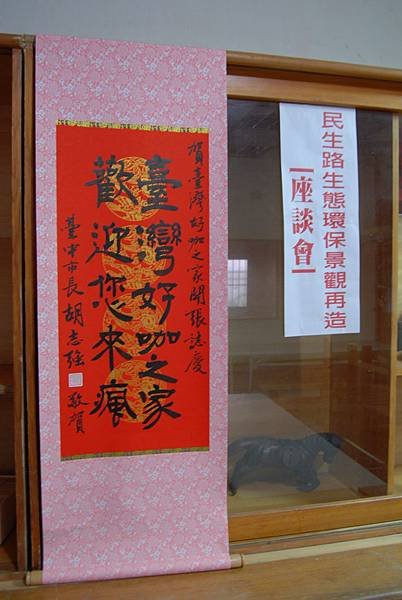 賀臺灣好咖之家開張誌慶
臺灣好咖之家
歡迎您來瘋
臺中市長 胡志強 敬賀
民生路生態環保景觀再造
【座談會】